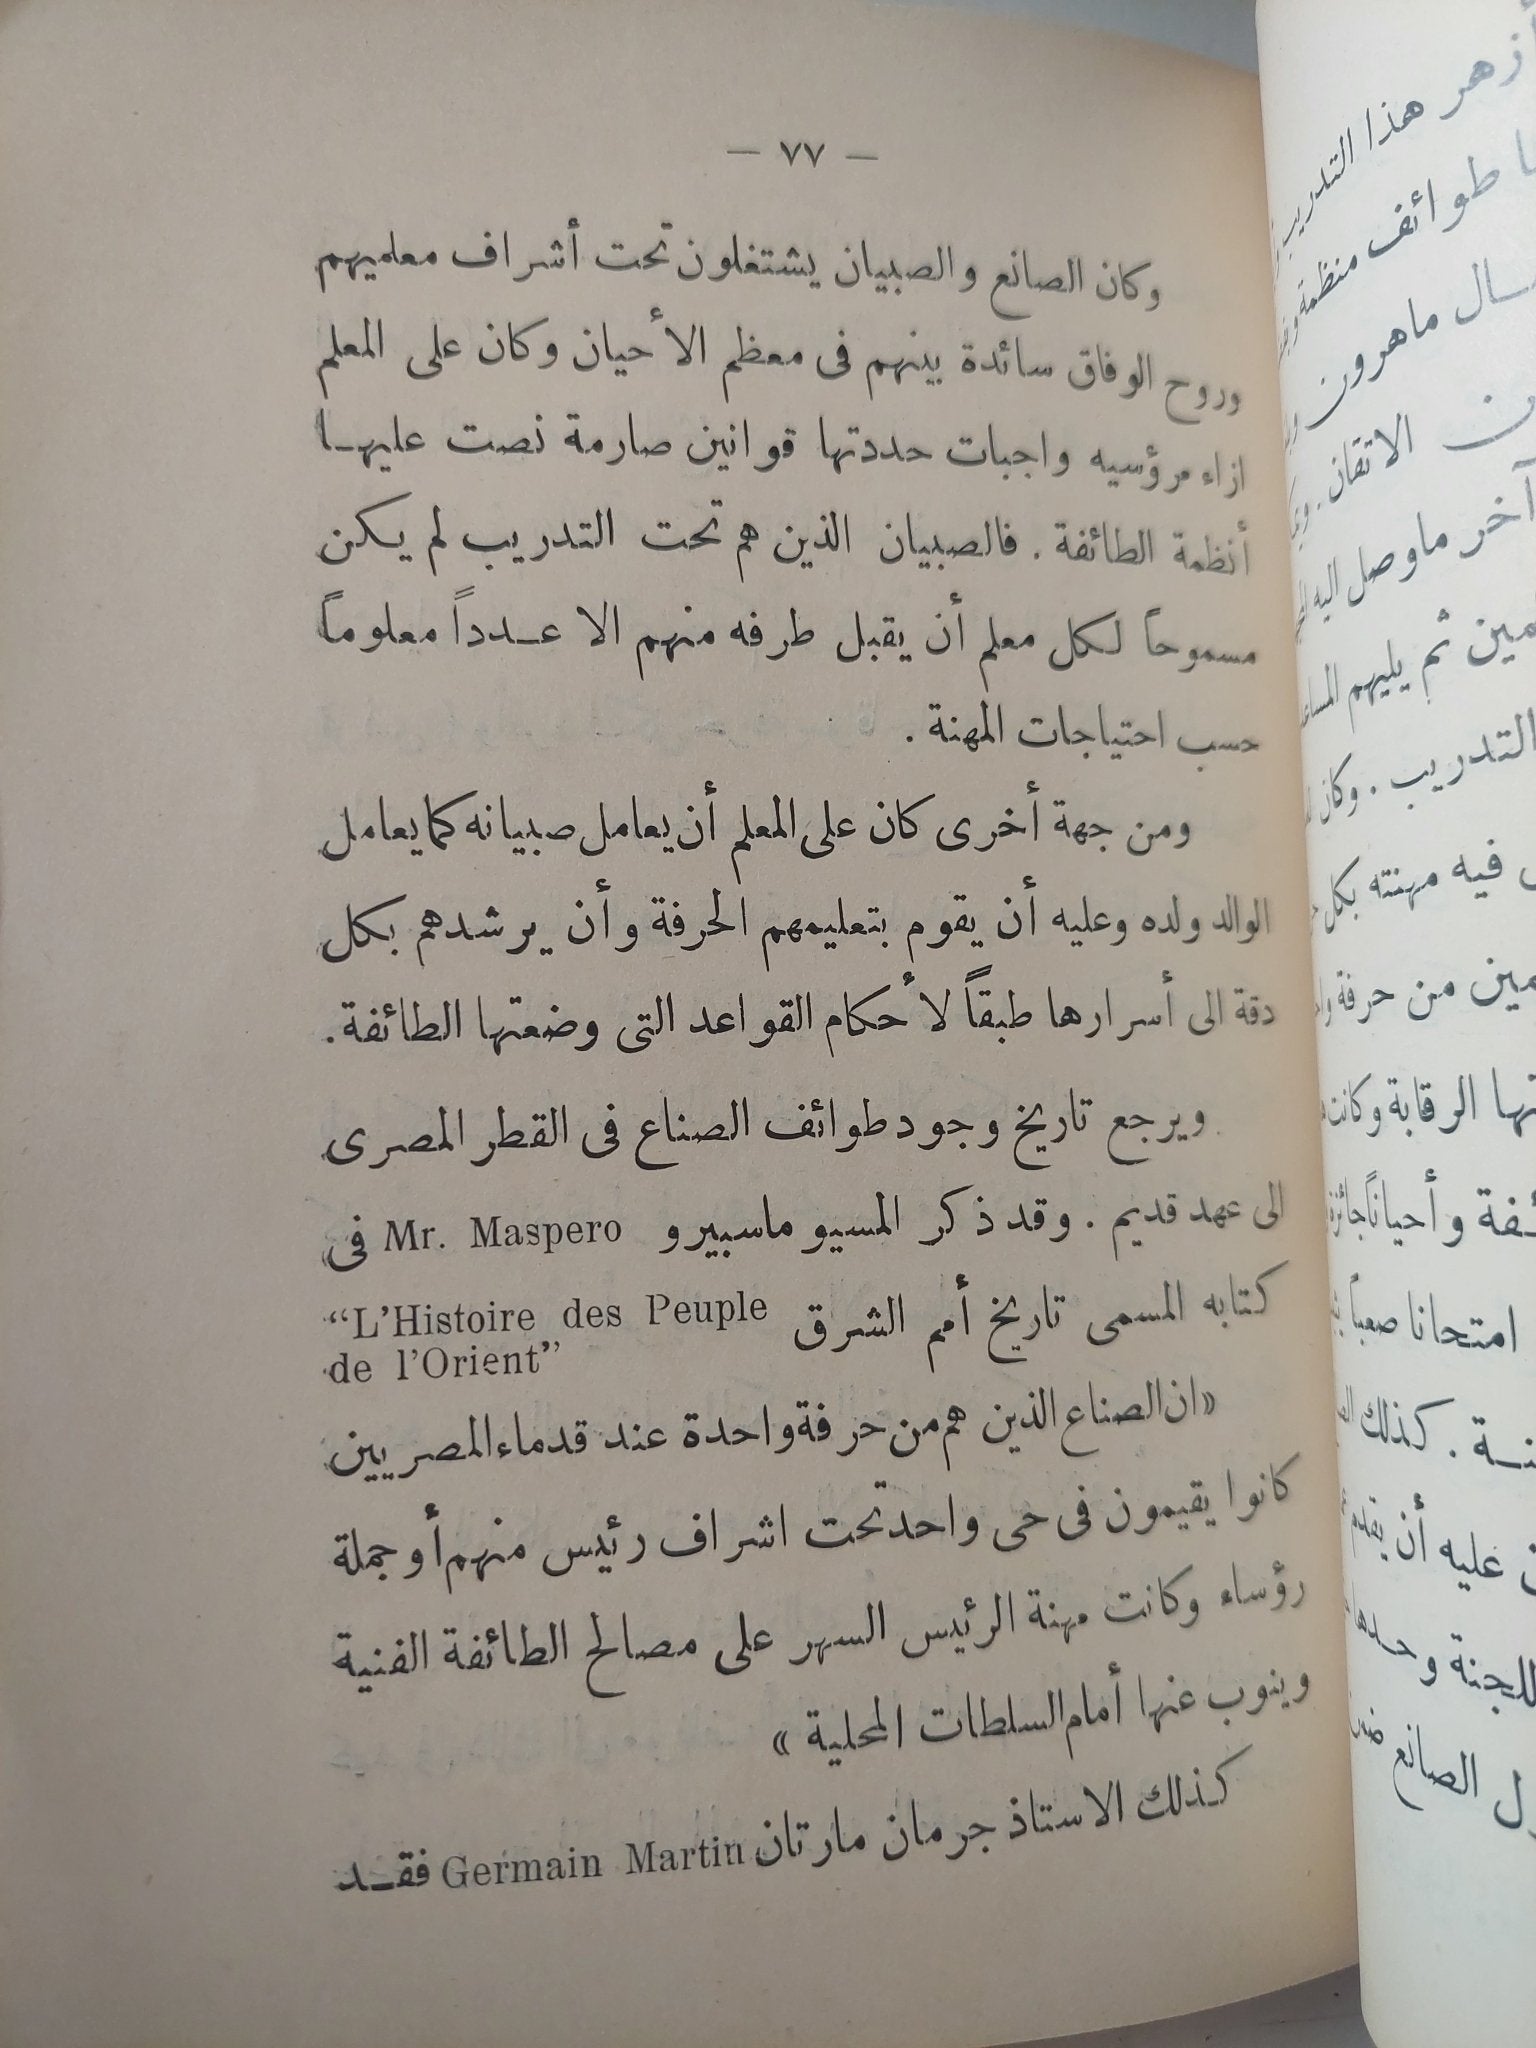 — ٧٧ —
وكان الصانع والصبيان يشتغلون تحت أشراف معلميهم
وروح الوفاق سائدة بينهم فى معظم الأحيان وكان على المعلم
ازاء مرؤسيه واجبات حددتها قوانين صارمة نصت عليها
أنظمة الطائفة . فالصبيان الذين هم تحت التدريب لم يكن
مسموحاً لكل معلم أن يقبل طرفه منهم الا عدداً معلوماً
حسب احتياجات المهنة .
ومن جهة أخرى كان على المعلم أن يعامل صبيانه كما يعامل
الوالد ولده وعليه أن يقوم بتعليمهم الحرفة وأن يرشدهم بكل
دقة الى أسرارها طبقاً لأحكام القواعد التى وضعتها الطائفة .
ويرجع تاريخ وجود طوائف الصناع فى القطر المصرى
الى عهد قديم . وقد ذكر المسيو ماسبيرو Mr. Maspero فى
كتابه المسمى تاريخ أمم الشرق “L’Histoire des Peuple
de l’Orient”
«ان الصناع الذين هم من حرفة واحدة عند قدماء المصريين
كانوا يقيمون فى حى واحد تحت اشراف رئيس منهم أو جملة
رؤساء وكانت مهنة الرئيس السهر على مصالح الطائفة الفنية
وينوب عنها أمام السلطات المحلية »
كذلك الاستاذ جرمان مارتان Germain Martin فقد
أزهر هذا التدريب
طوائف منظمة
ماهرون
الاتقان .
آخر ماوصل اليه
ثم يليهم
التدريب . وكان
فيه مهنته بكل
من حرفة
الرقابة وكانت
وأحياناً جائزة
امتحانا صعباً
كذلك
عليه أن يقدم
للجنة وحدها
الصانع